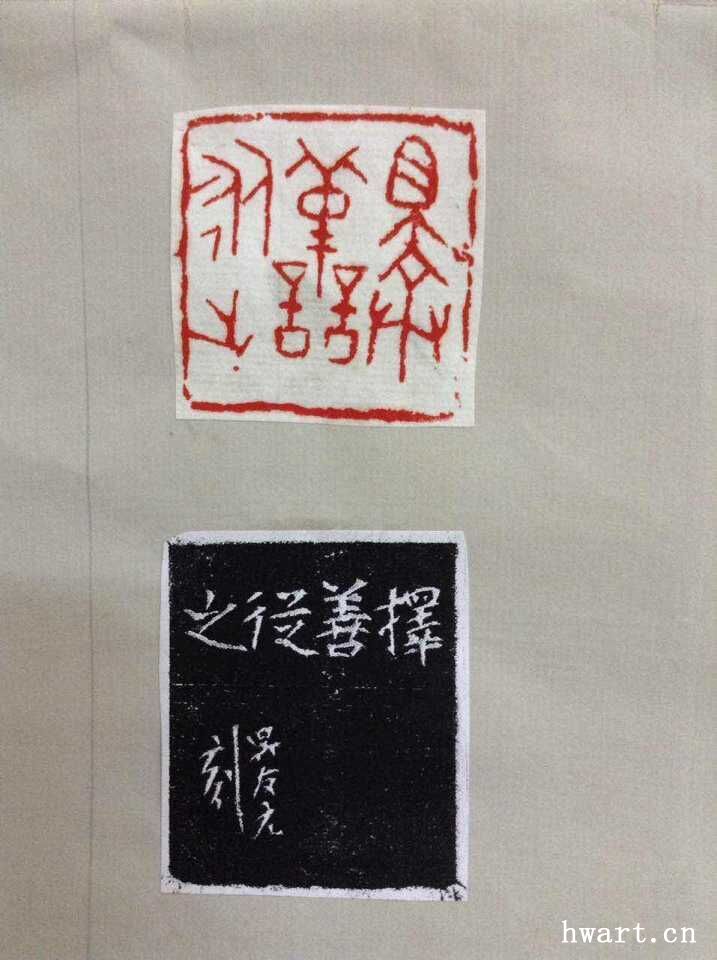 擇善從之
擇善從之
友元
刻
hwart.cn